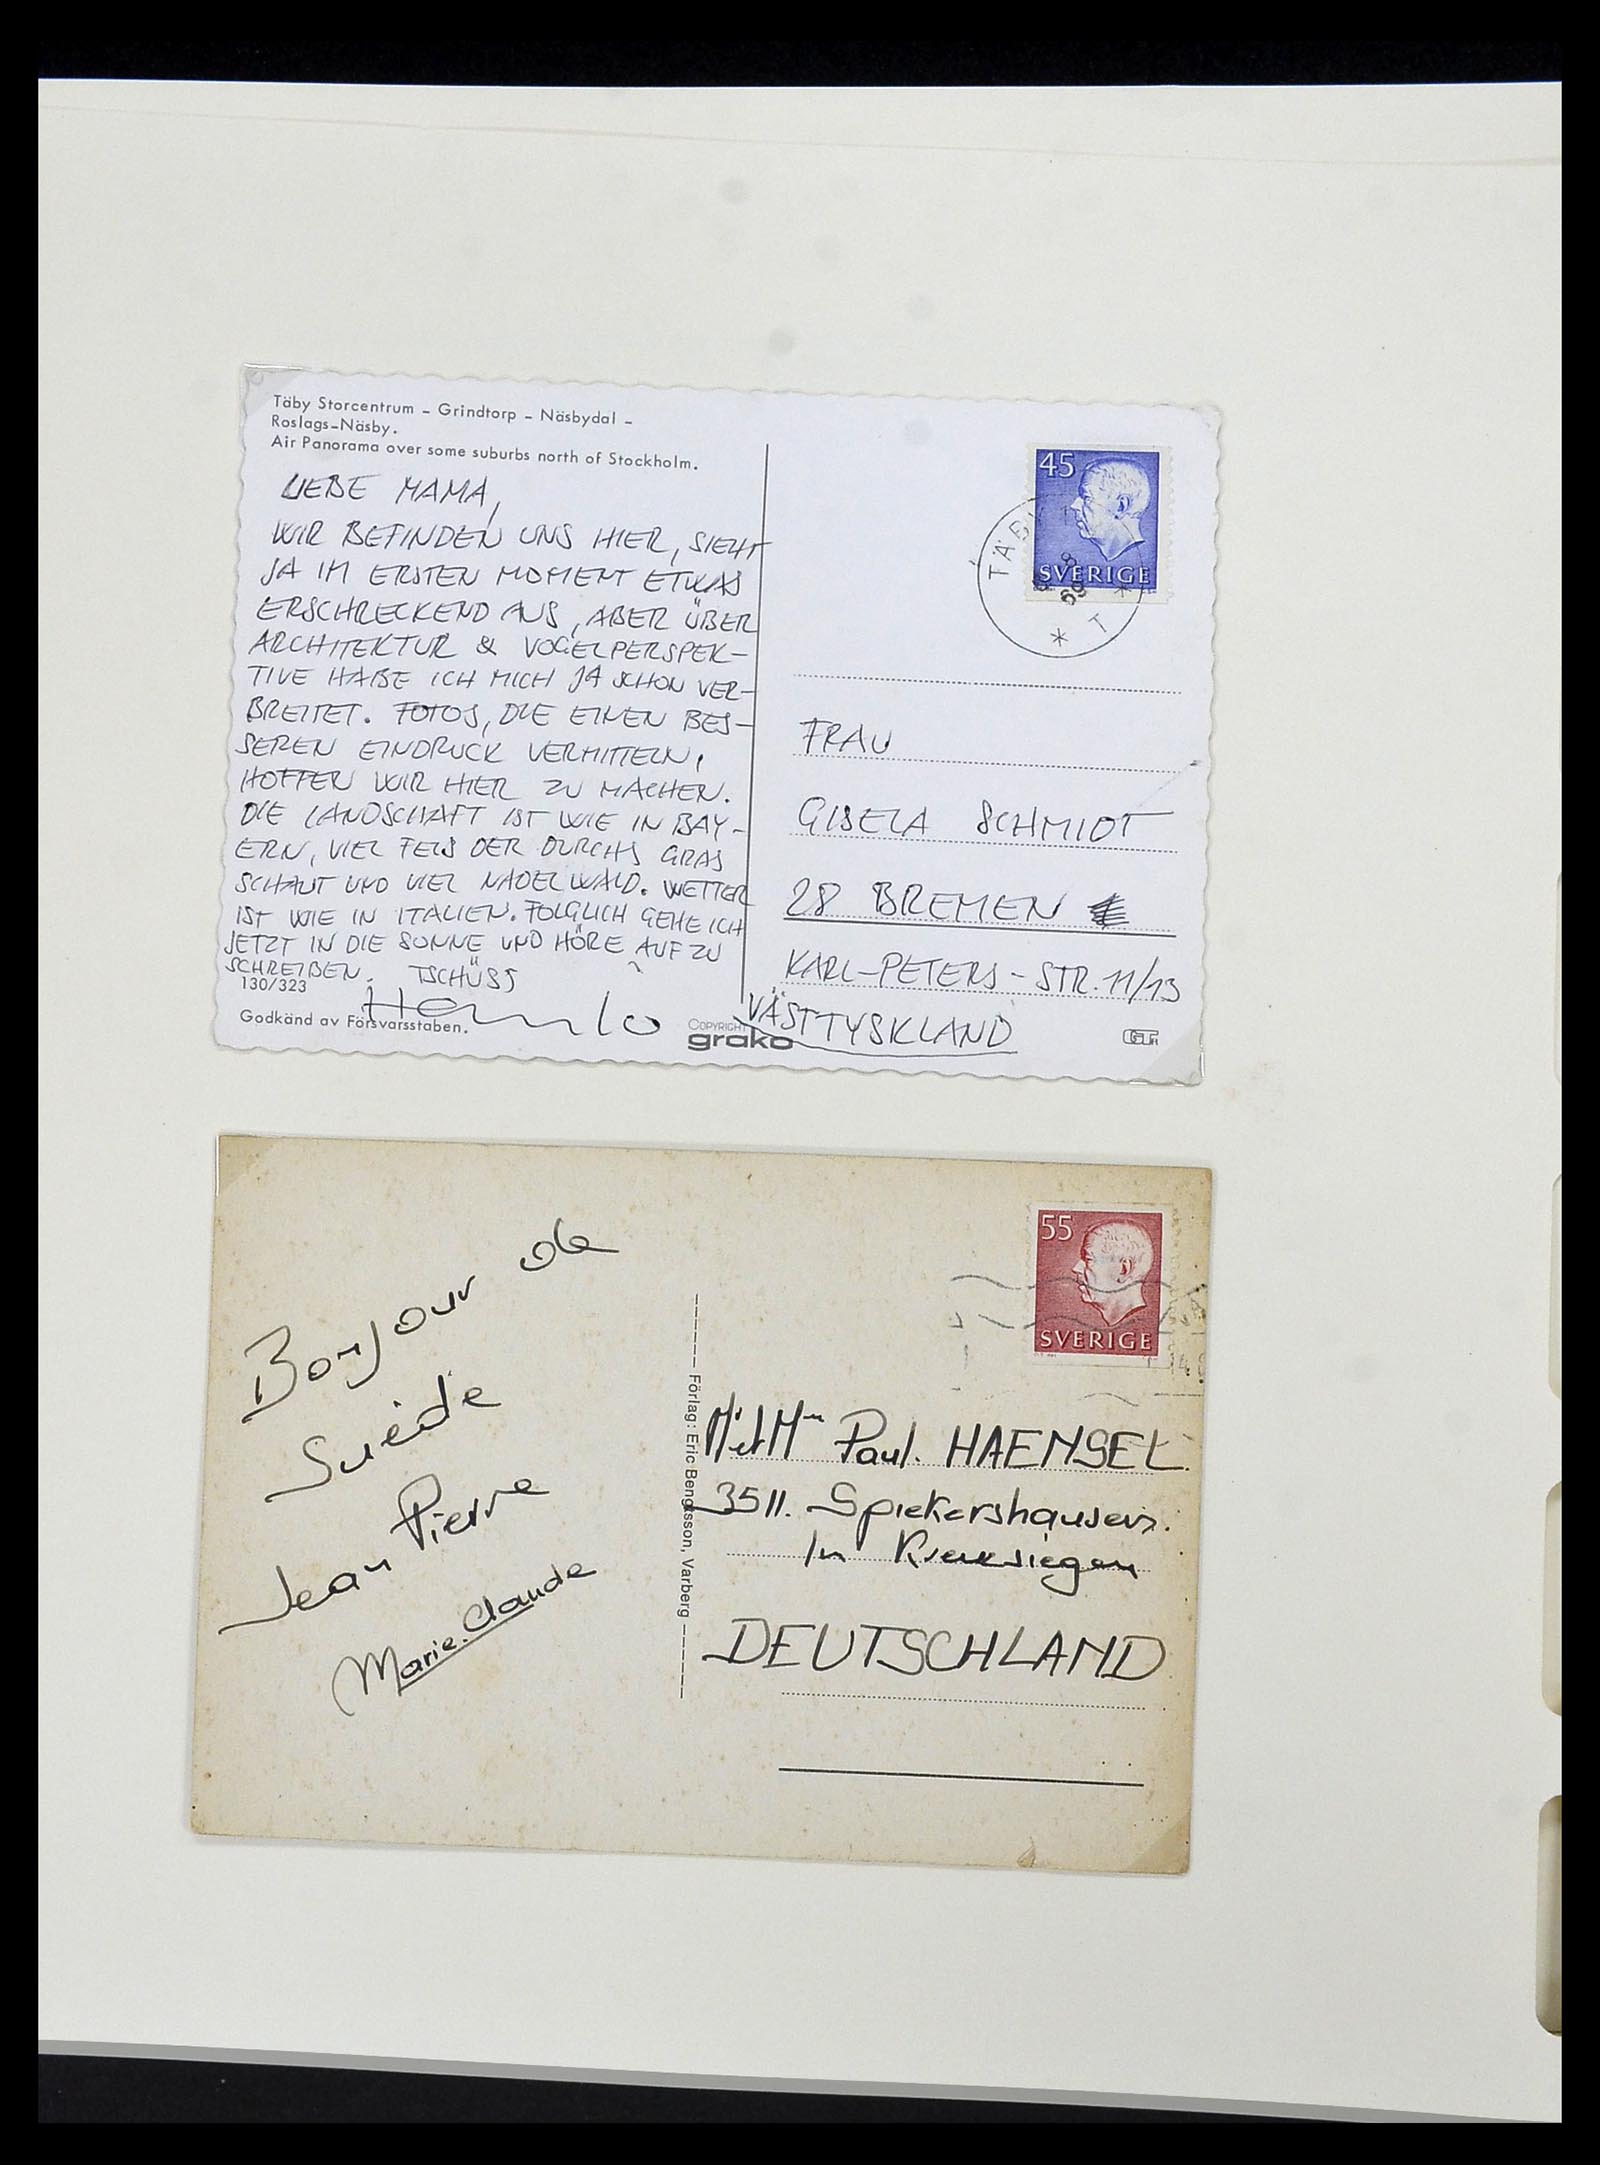 Täby Storcentrum – Grindtorp – Näsbydal –
Roslags-Näsby.
Air Panorama over some suburbs north of Stockholm.
LIEBE MAMA,
WIR BEFINDEN UNS HIER, SIEHT
JA IM ERSTEN MOMENT ETWAS
ERSCHRECKEND AUS, ABER ÜBER
ARCHITEKTUR & VOGELPERSPEK-
TIVE HABE ICH MICH JA SCHON VER-
BREITET. FOTOS, DIE EINEN BES-
SEREN EINDRUCK VERMITTELN,
HOFFEN WIR HIER ZU MACHEN.
DIE LANDSCHAFT IST WIE IN BAY-
ERN, VIEL FELS DER DURCHS GRAS
SCHAUT UND VIEL NADELWALD. WETTER
IST WIE IN ITALIEN. FOLGLICH GEHE ICH
JETZT IN DIE SONNE UND HÖRE AUF ZU
SCHREIBEN. TSCHÜSS
130/323
Godkänd av Försvarsstaben.
COPYRIGHT
grako
45
SVERIGE
TÄBY
69
T
FRAU
GISELA SCHMIDT
28 BREMEN
KARL-PETERS-STR. 11/13
VÄSTTYSKLAND
Bonjour de
Suède
Jean Pierre
Marie.Claude
Förlag: Eric Bengtsson, Varberg
55
SVERIGE
Mr et Mme Paul. HAENSEL
3511. Spiekershausen.
In
DEUTSCHLAND